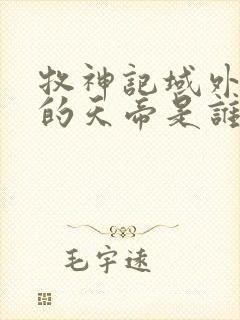 牧神記域外
的天帝是誰
毛宇逺